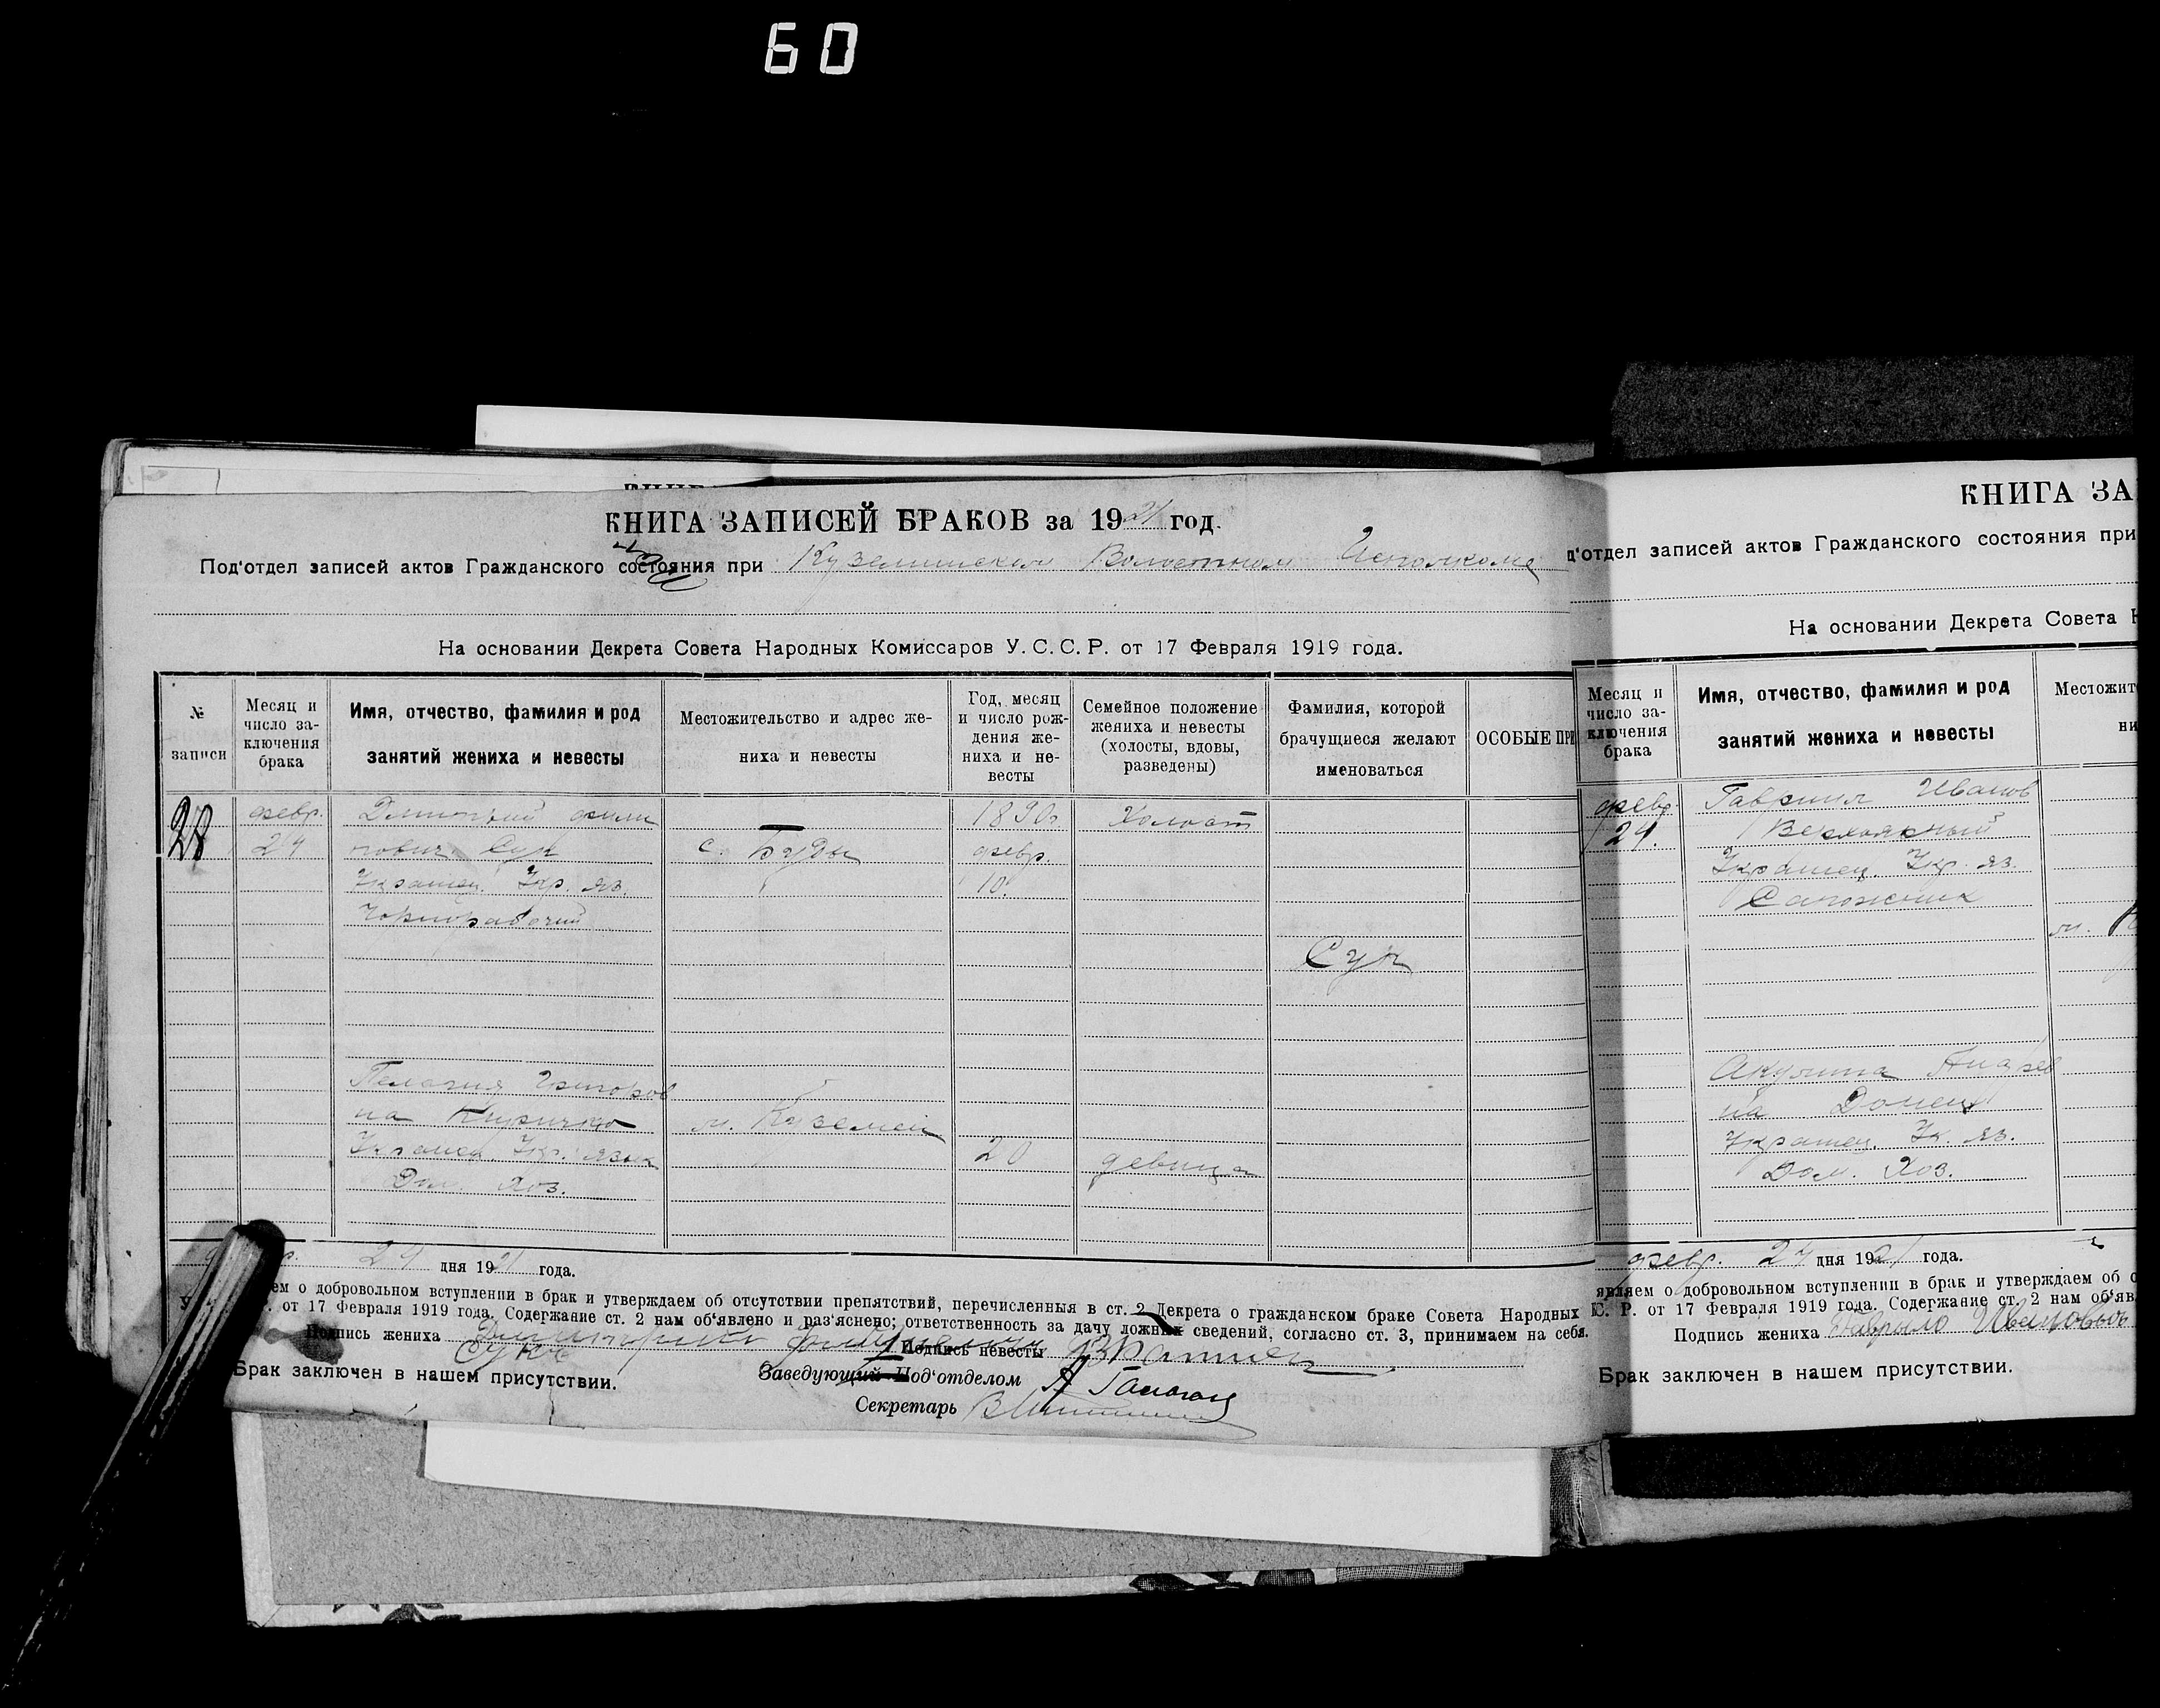 60
КНИГА ЗАПИСЕЙ БРАКОВ за 1921 год.
Под'отдел записей актов Гражданского состояния при Куземинском Волостном Исполкоме
На основании Декрета Совета Народных Комиссаров У. С. С. Р. от 17 Февраля 1919 года.
№ записи
Месяц и число заключения брака
Имя, отчество, фамилия и род занятий жениха и невесты
Местожительство и адрес жениха и невесты
Год, месяц и число рождения жениха и невесты
Семейное положение жениха и невесты (холосты, вдовы, разведены)
Фамилия, которой брачущиеся желают именоваться
ОСОБЫЕ ПРИ
28
февр.
24
Дмитрий Фили
пович Сук
Украинец. Укр. яз.
Чорнорабочий
с. Буды
1890г.
февр.
10.
Холост
Сук
Пелагия Григоров
на Киричко
Украинец. Укр. язык
Дом. Хоз.
м. Куземен
20
девица
24 дня 1921 года.
ем о добровольном вступлении в брак и утверждаем об отсутствии препятствий, перечисленныя в ст. 2 Декрета о гражданском браке Совета Народных
. от 17 Февраля 1919 года. Содержание ст. 2 нам об'явлено и раз'яснено; ответственность за дачу ложных сведений, согласно ст. 3, принимаем на себя.
Подпись жениха
Сукъ
Подпись невесты
Брак заключен в нашем присутствии.
Заведующий Под'отделом
Секретарь
КНИГА ЗА
п'отдел записей актов Гражданского состояния при
На основании Декрета Совета Н
Месяц и число заключения брака
Имя, отчество, фамилия и род занятий жениха и невесты
Местожит
ни
февр
24.
Гавриил Иванов
Украинец. Укр. яз.
Сапожник
м. К
Акулина Андрее
на Донец
Украинец. Ук. яз.
Дом. Хоз.
февр. 24 дня 1921 года.
являем о добровольном вступлении в брак и утверждаем об о
С. Р. от 17 Февраля 1919 года. Содержание ст. 2 нам об'яв
Подпись жениха Гаврыло Ивановыч
Брак заключен в нашем присутствии.